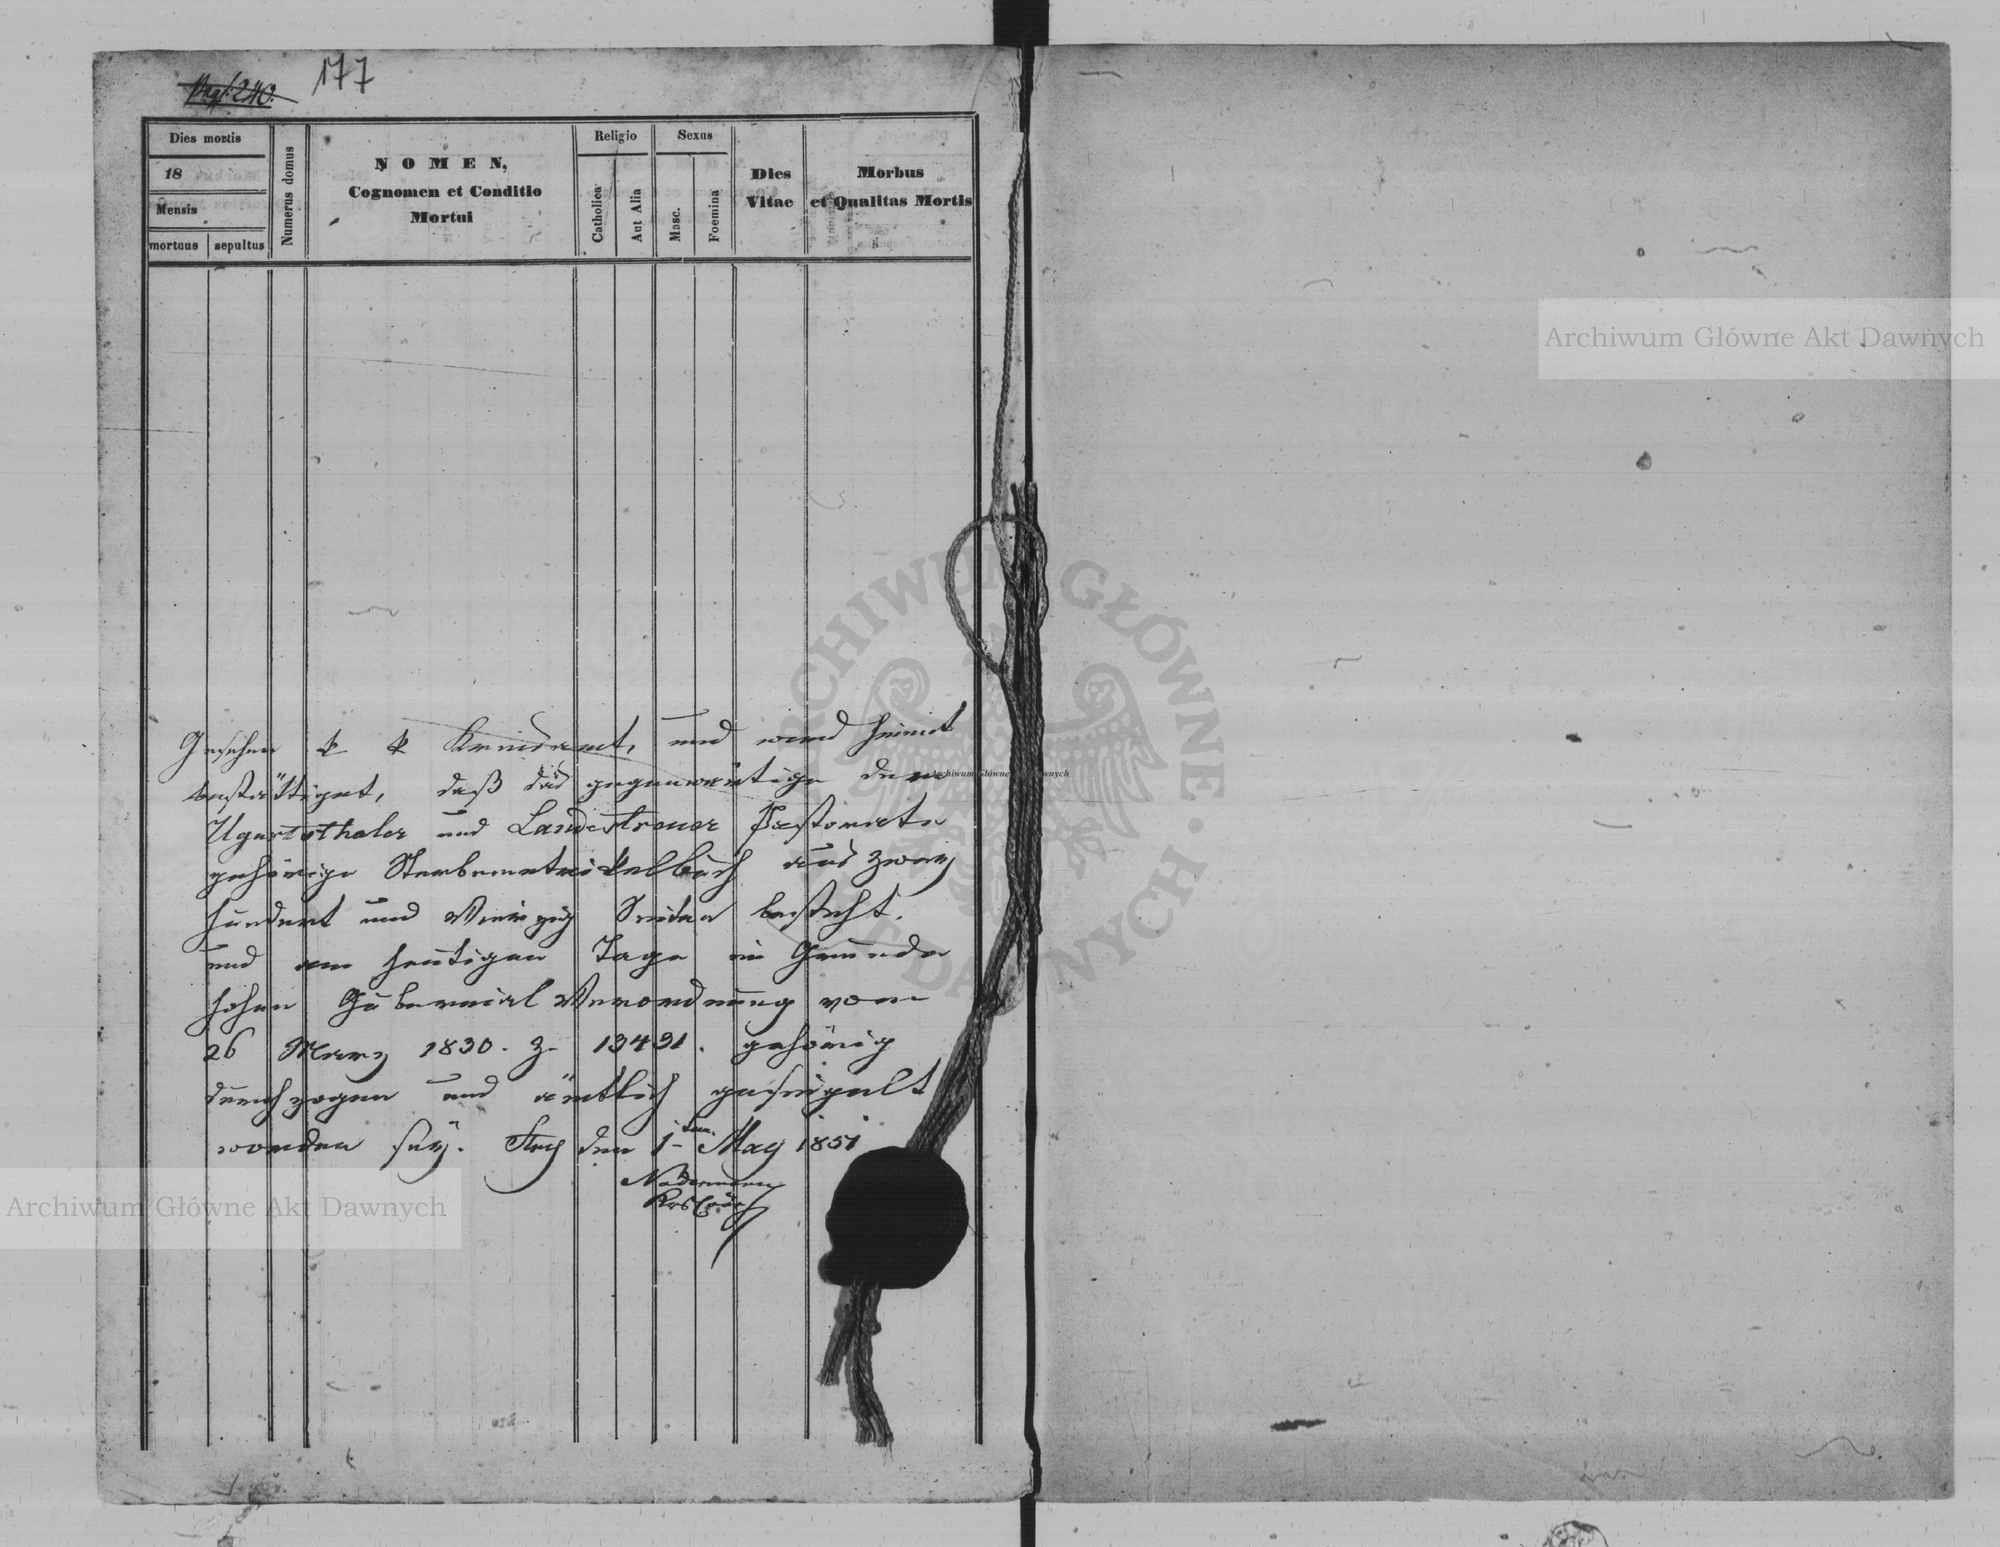 Pag. 240.
177
Dies mortis
18
Mensis
mortuus
sepultus
Numerus domus
NOMEN,
Cognomen et Conditio
Mortui
Religio
Catholica
Aut Alia
Sexus
Masc.
Foemina
Dies
Vitae
Morbus
et Qualitas Mortis
Gesehen k k Kreisamt, und wird hiemit
bestättiget, daß das gegenwärtige dem
Ugartsthaler und Landestreuer Pastorate
gehörige Sterbematrickelbuch aus zwey
hundert und Vierzig Seiten besteht.
und am heutigen Tage im Grunde
hohen Gubernial Verordnung vom
26 Marz 1830. Z. 13491. gehörig
durchzogen und ämtlich gesiegelt
worden sey. Stry den 1ten May 1851
Archiwum Główne Akt Dawnych
Archiwum Główne Akt Dawnych
Archiwum Główne Akt Dawnych
ARCHIWUM GŁÓWNE AKT DAWNYCH